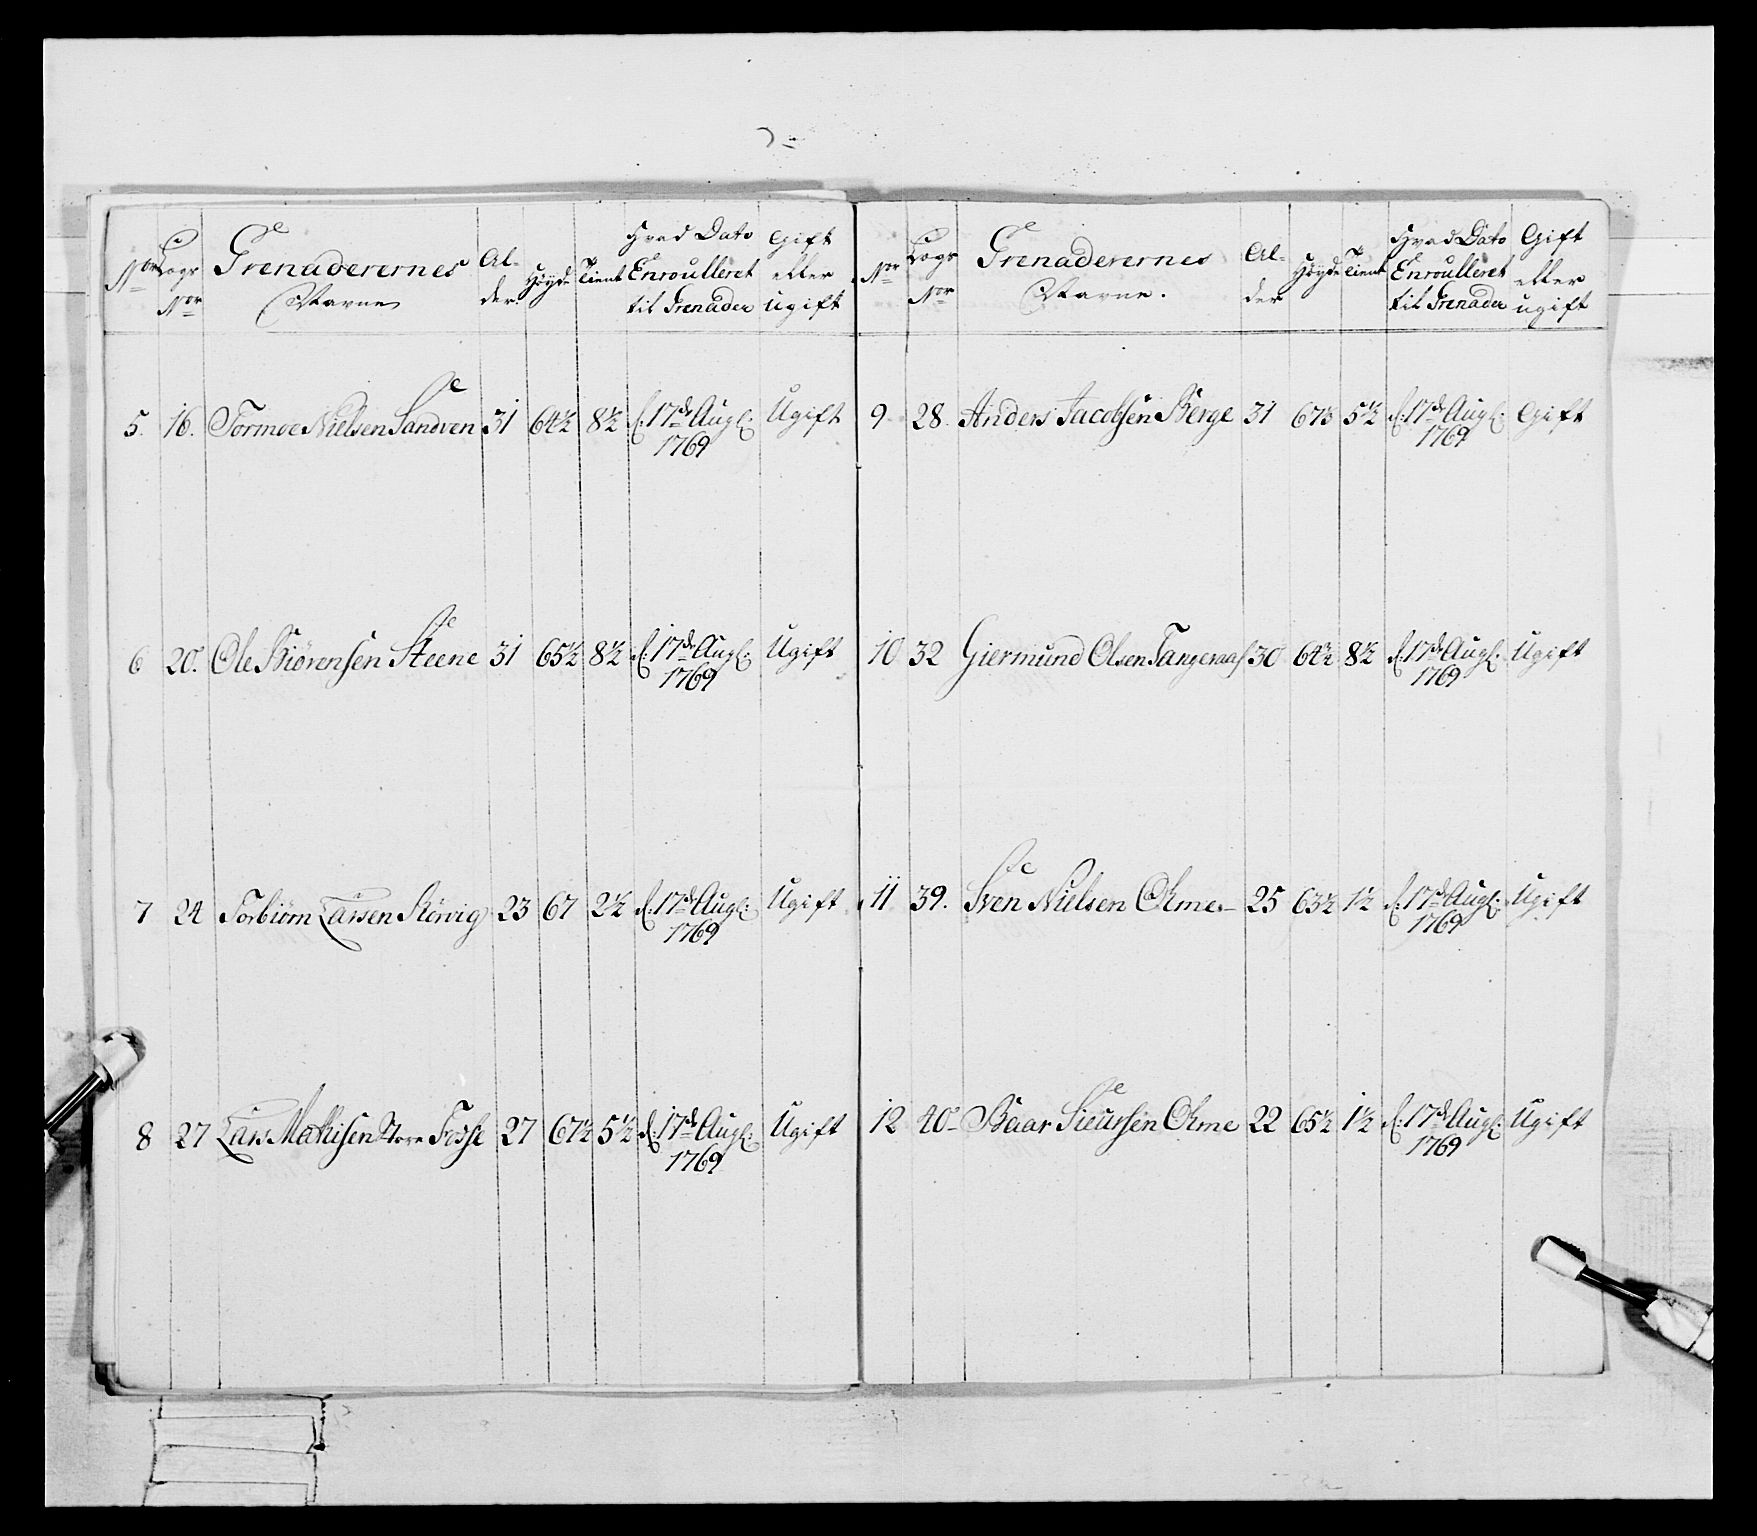 Nor Logs Nor Grenaderernes Navne Al-der. Høyde Tient Hvad Dato Enroulleret til Grenader Gift eller ugift
5. 16. Tormoe Nielsen Sandven 31 64½ 8½ d. 17de Aug: Ugift
1769
6 20. Ole Biörensen Steene 31 65½ 8½ d. 17de Aug: Ugift
1769
7 24 Torbiörn Larsen Rörvig 23 67 2½ d. 17de Aug: Ugift
1769
8 27 Lars Mathisen Store Fosse 27 67½ 5½ d. 17de Aug: Ugift
1769
Nor Logs Nor Grenaderernes Navne. Al-der Høyde Tient Hvad Dato Enroulleret til Grenader Gift eller ugift
9 28. Anders Jacobsen Berge 31 67½ 5½ d. 17de Aug: Gift
1769
10 32 Giermund Olsen Tangeraas 30 64½ 8½ d. 17de Aug: Ugift
1769
11 39. Sven Nielsen Ohme 25 63½ 1½ d. 17de Aug: Ugift
1769
12 40 Baar Siursen Ohme 22 65½ 1½ d. 17de Aug: Ugift
1769